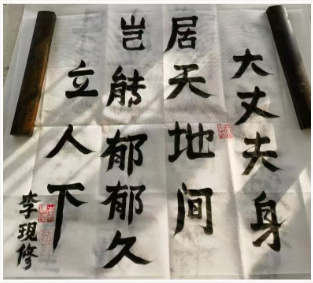 大丈夫身
居天地间
岂能郁郁久
立人下
李现修